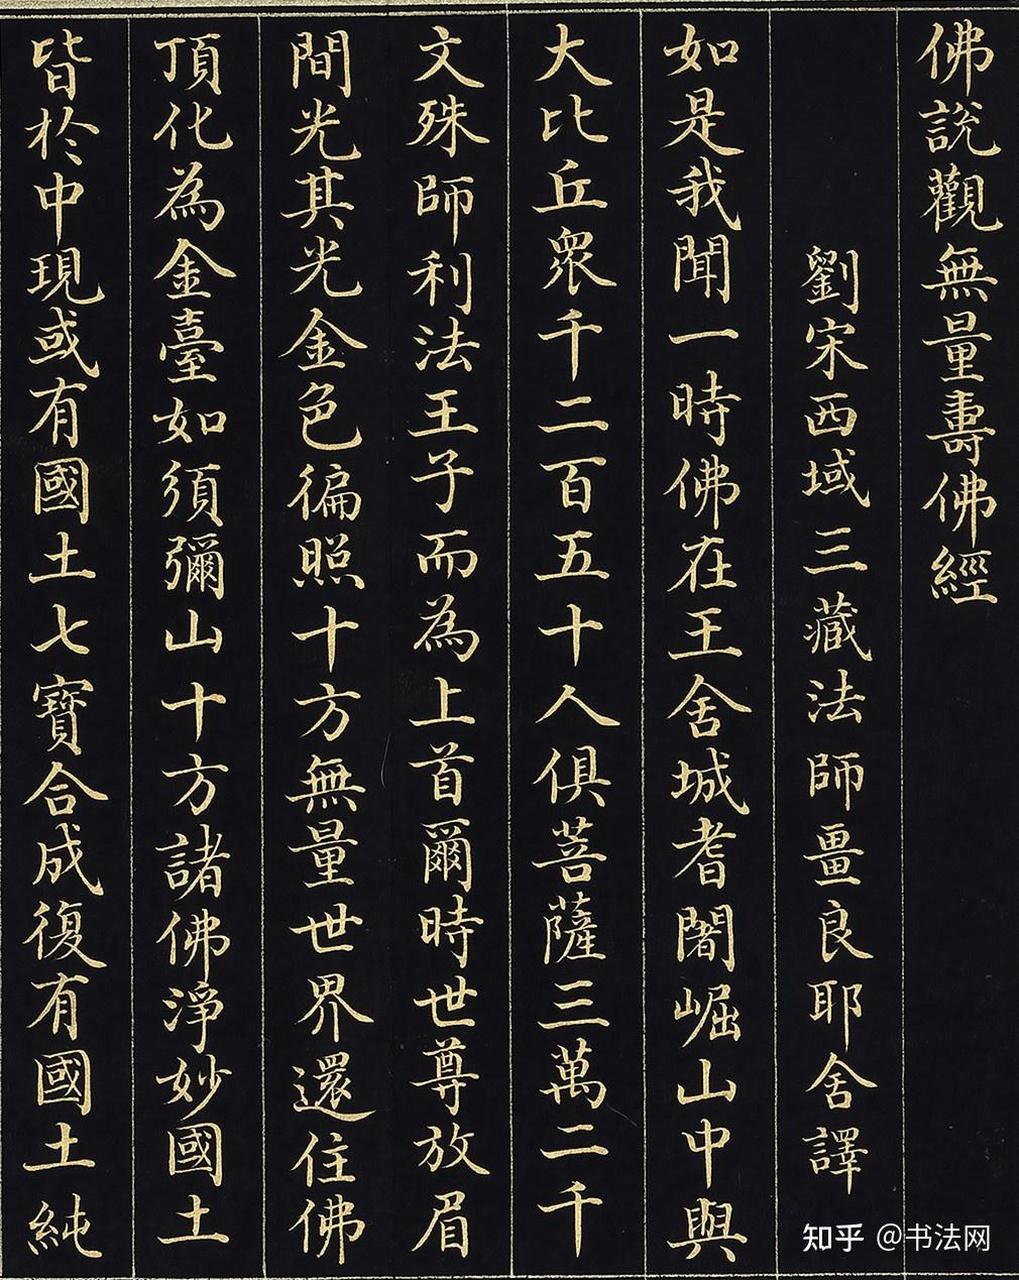 佛說觀無量壽佛經
劉宋西域三藏法師畺良耶舍譯
如是我聞一時佛在王舍城耆闍崛山中與
大比丘衆千二百五十人俱菩薩三萬二千
文殊師利法王子而為上首爾時世尊放眉
間光其光金色徧照十方無量世界還住佛
頂化為金臺如須彌山十方諸佛淨妙國土
皆於中現或有國土七寶合成復有國土純
知乎 @书法网